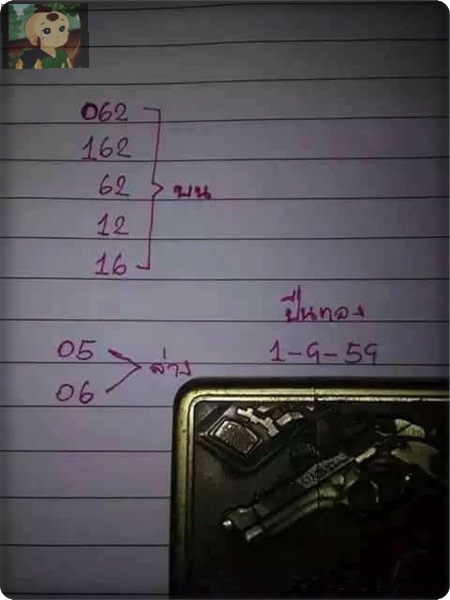 062
162
62
บน
12
16
ปืนทอง
05
ล่าง
06
1-9-59